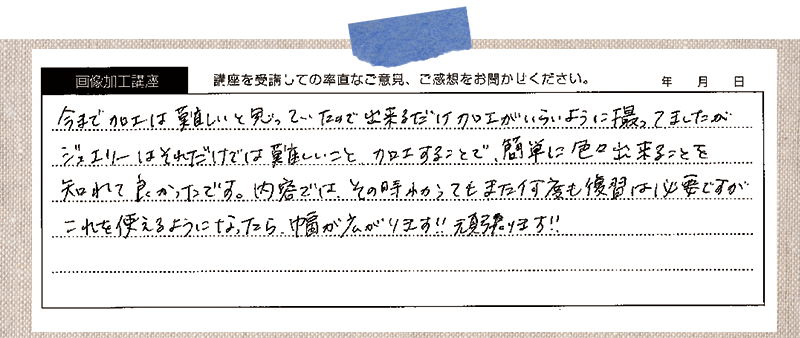 画像加工講座 講座を受講しての率直なご意見、ご感想をお聞かせください。 年 月 日
今まで加工は難しいと思っていたので出来るだけ加工がいらいように撮ってましたが
ジュエリーはそれだけでは難しいこと 加工することで、簡単に色々出来ることを
知れて良かったです。内容では その時わかってもまた何度も復習は必要ですが
これを使えるようになったら、幅が広がります!! 頑張ります!!